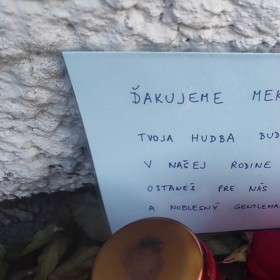 ĎAKUJEME
TVOJA HUDBA
V NAŠEJ RODINE
OSTANEŠ PRE NÁS
A NOBLESNÝ